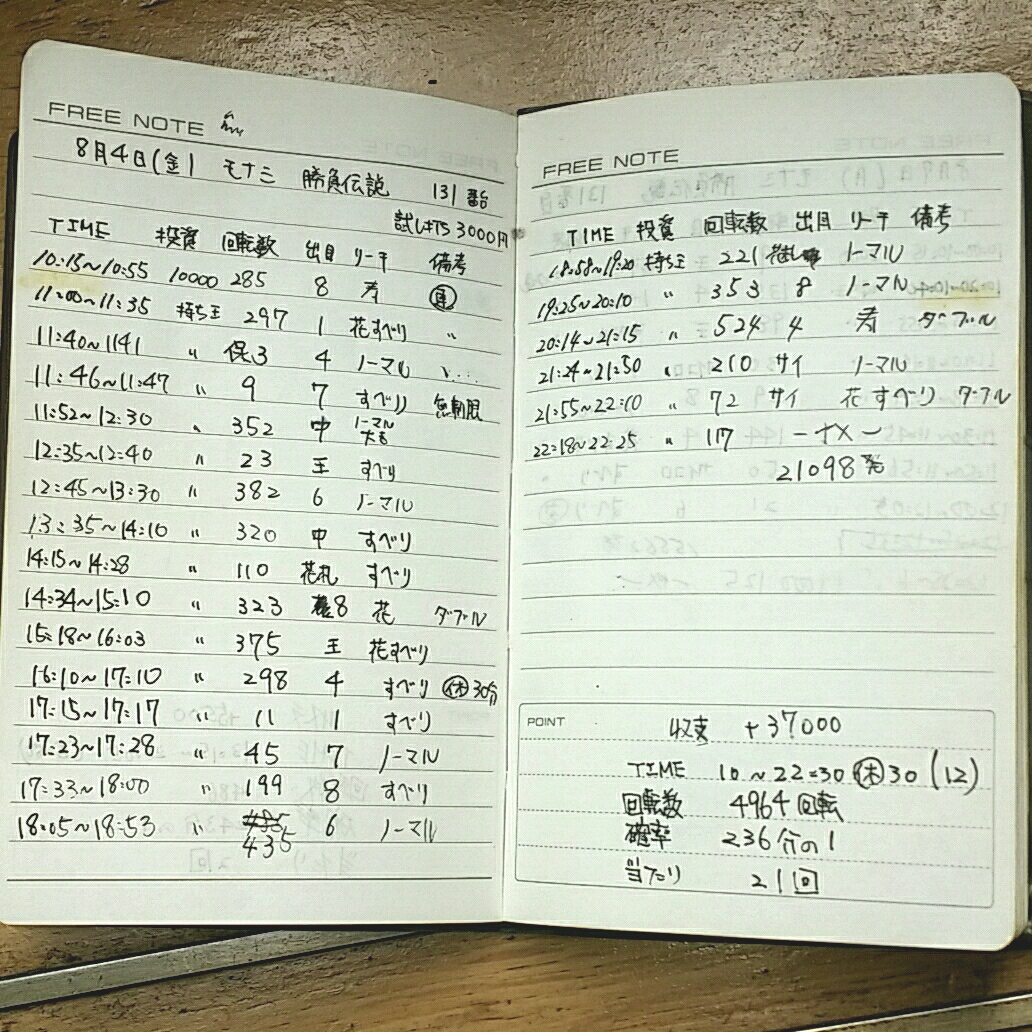 FREE NOTE
8月4日(金) モナミ 勝負伝説 131番台
試し打ち 3000円
TIME 投資 回転数 出目 リーチ 備考
10:15~10:55 10000 285 8 寿
11:00~11:35 持ち玉 297 1 花すべり 〃
11:40~1141 〃 保.3 4 ノーマル
11:46~11:47 〃 9 7 すべり 無制限
11:52~12:30 〃 352 中 ノーマル
12:35~12:40 〃 23 王 すべり
12:45~13:30 〃 382 6 ノーマル
13:35~14:10 〃 320 中 すべり
14:15~14:28 110 花札 すべり
14:34~15:10 〃 323 8 花 ダブル
15:18~16:03 〃 375 王 花すべり
16:10~17:10 〃 298 4 すべり 休 30分
17:15~17:17 〃 11 1 すべり
17:23~17:28 〃 45 7 ノーマル
17:33~18:00 〃 199 8 すべり
18:05~18:53 〃 435 6 ノーマル
FREE NOTE
TIME 投資 回転数 出目 リーチ 備考
18:58~19:20 持ち玉 221 ノーマル
19:25~20:10 〃 353 8 ノーマル
20:14~21:15 〃 524 4 寿 ダブル
21:24~21:50 〃 210 サイ ノーマル
21:55~22:10 〃 72 サイ 花すべり ダブル
22:18~22:25 〃 117 ーナメー
21098発
POINT
収支 +37000
TIME 10~22:30 休30 (12)
回転数 4964回転
確率 236分の1
当たり 21回